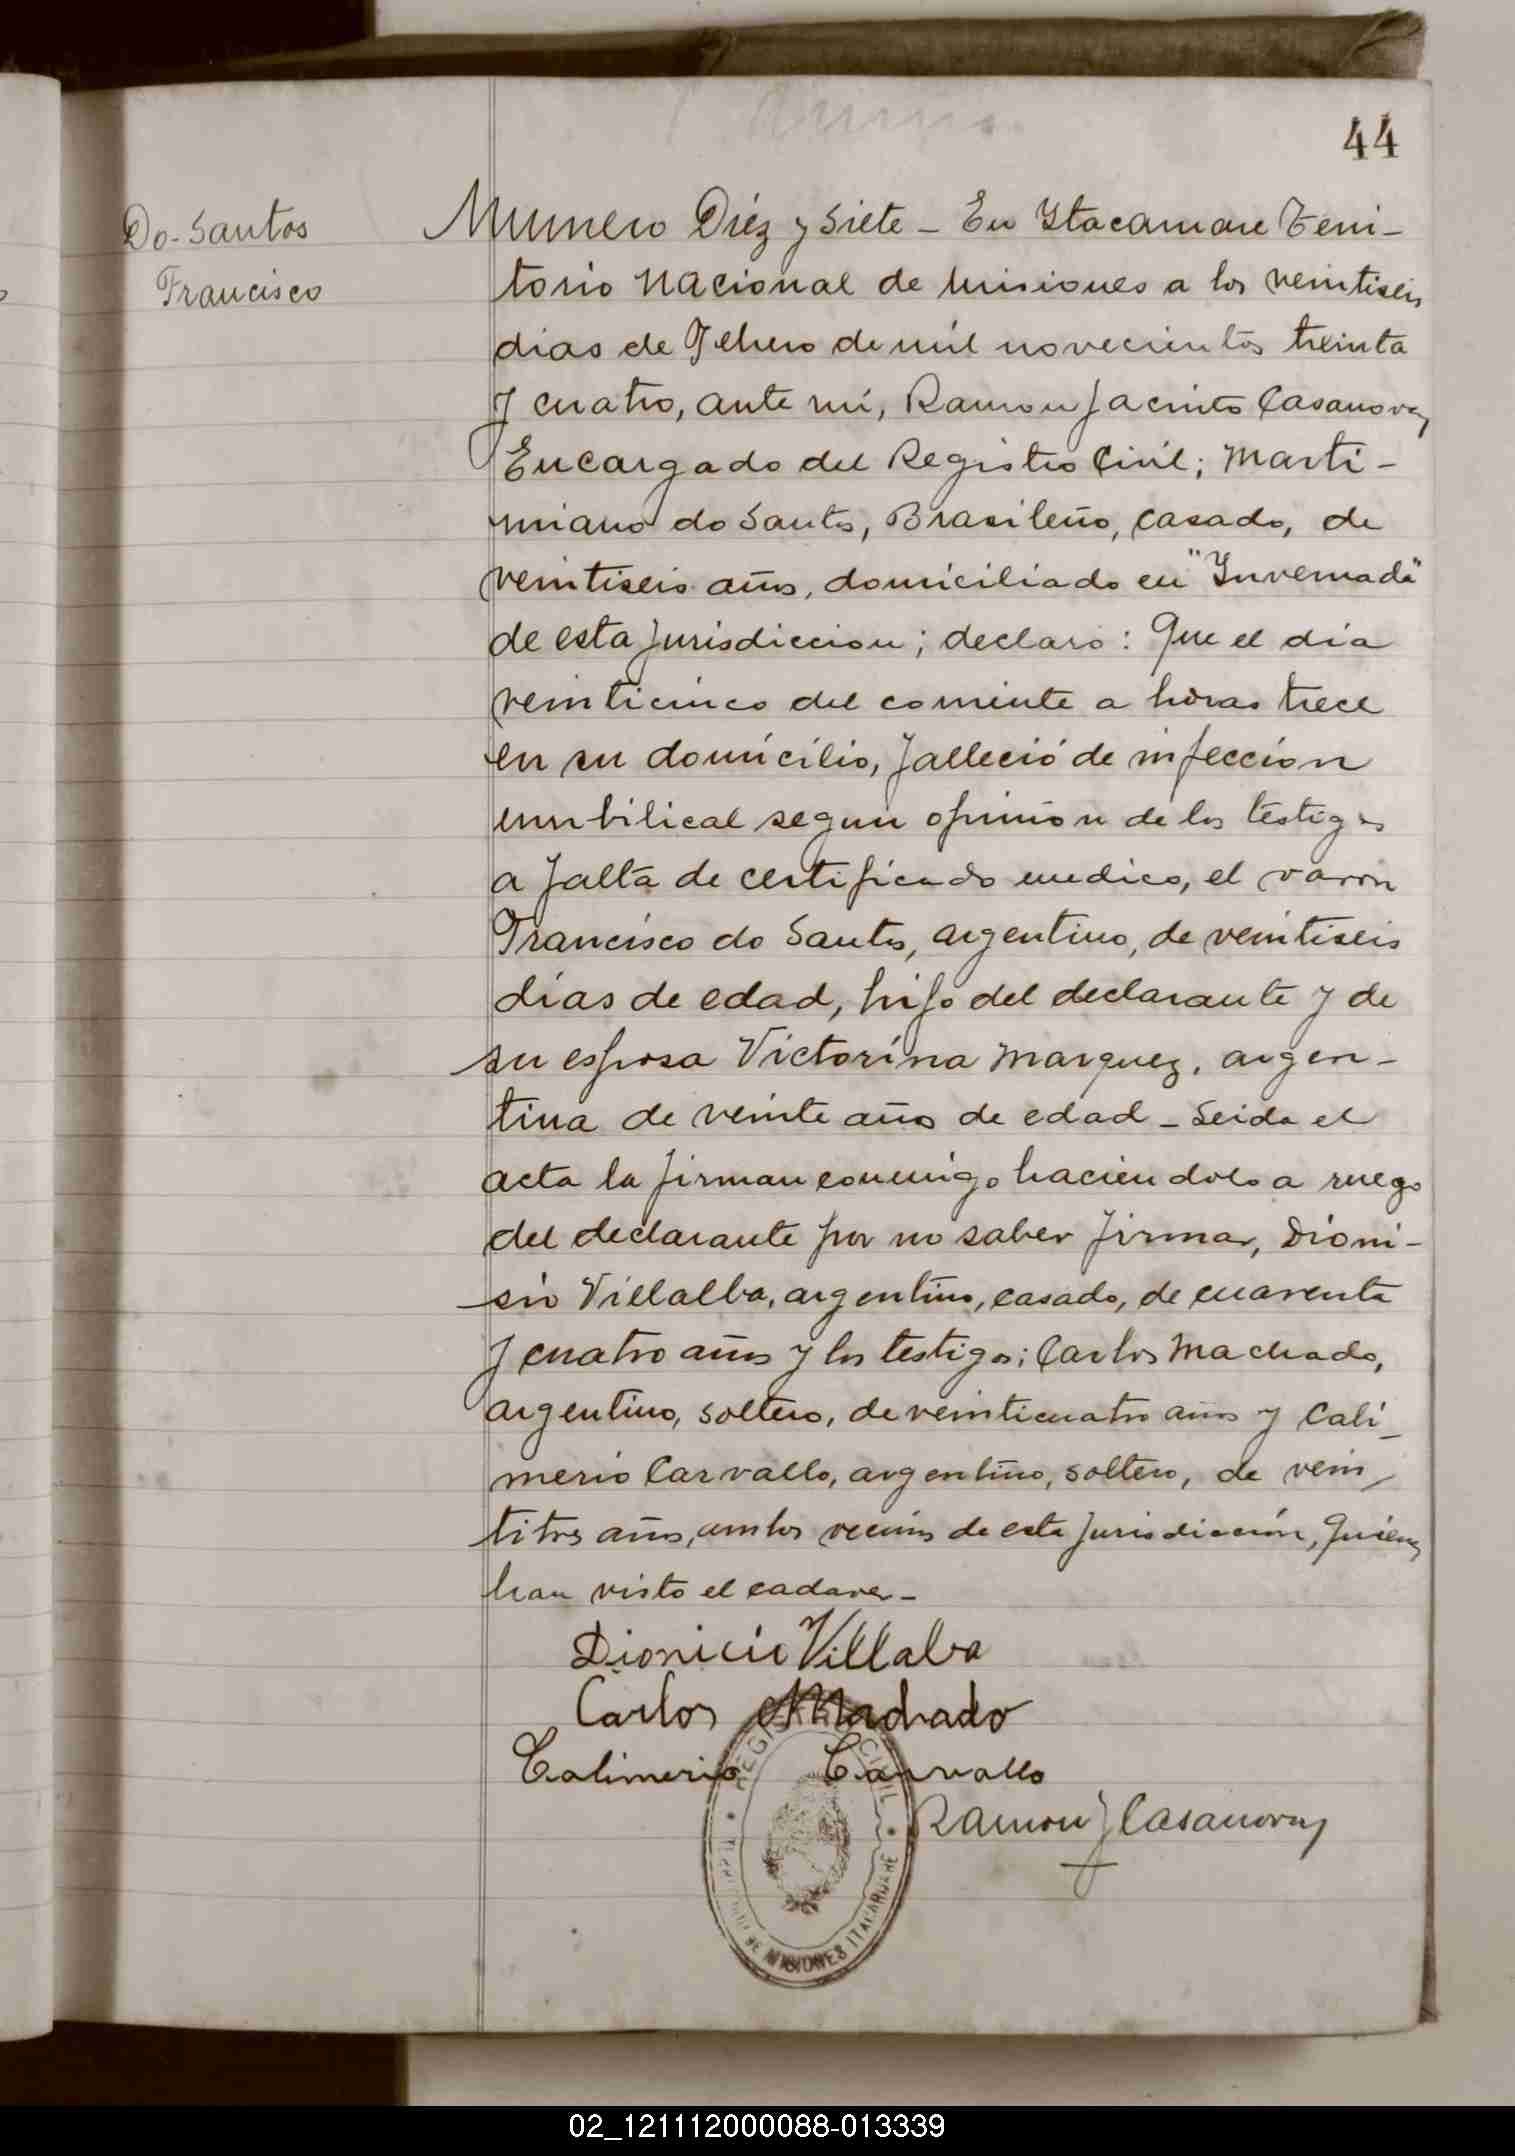 44
Do-Santos
Francisco
Numero Diéz y Siete - En Itacaruare Terri-
torio Nacional de Misiones a los veintiseis
dias de Febrero de mil novecientos treinta
y cuatro, ante mí, Ramon Jacinto Casanova,
Encargado del Registro Civil; Marti-
miano do Santos, Brasileño, casado, de
veintiseis años, domiciliado en "Invernada"
de esta jurisdiccion; declaro: Que el dia
veinticinco del corriente a horas trece
en su domicilio, falleció de infeccion
umbilical segun opinion de los testigos
a falta de certificado medico, el varon
Francisco do Santos, argentino, de veintiseis
días de edad, hijo del declarante y de
su esposa Victorina Marquez, argen-
tina de veinte años de edad - Leida el
acta la firman conmigo haciendolo a ruego
del declarante por no saber firmar, Dioni-
sio Villalba, argentino, casado, de cuarenta
y cuatro años y los testigos; Carlos Machado,
argentino, soltero, de veinticuatro años y Cali-
merio Carvallo, argentino, soltero, de vein-
titres años, ambos vecinos de esta jurisdicción, quienes
han visto el cadaver-
Dionicio Villalva
Carlos Machado
Calimerio Carvallo
Ramon J Casanova
REGISTRO CIVIL
TERRITORIO DE MISIONES ITACARUARE
02_121112000088-013339